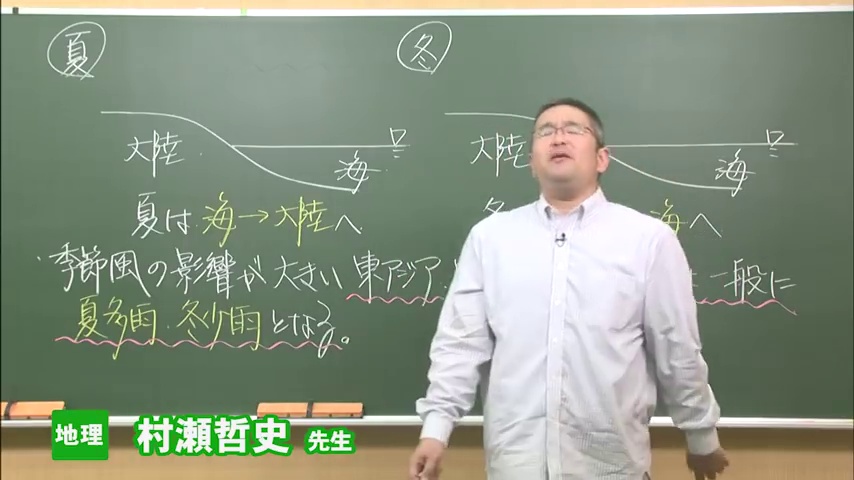 夏
冬
大陸
海
大陸
海
夏は 海→大陸へ
海へ
季節風の影響が大きい 東アジア
一般に
夏多雨・冬少雨となる。
地理 村瀬哲史 先生